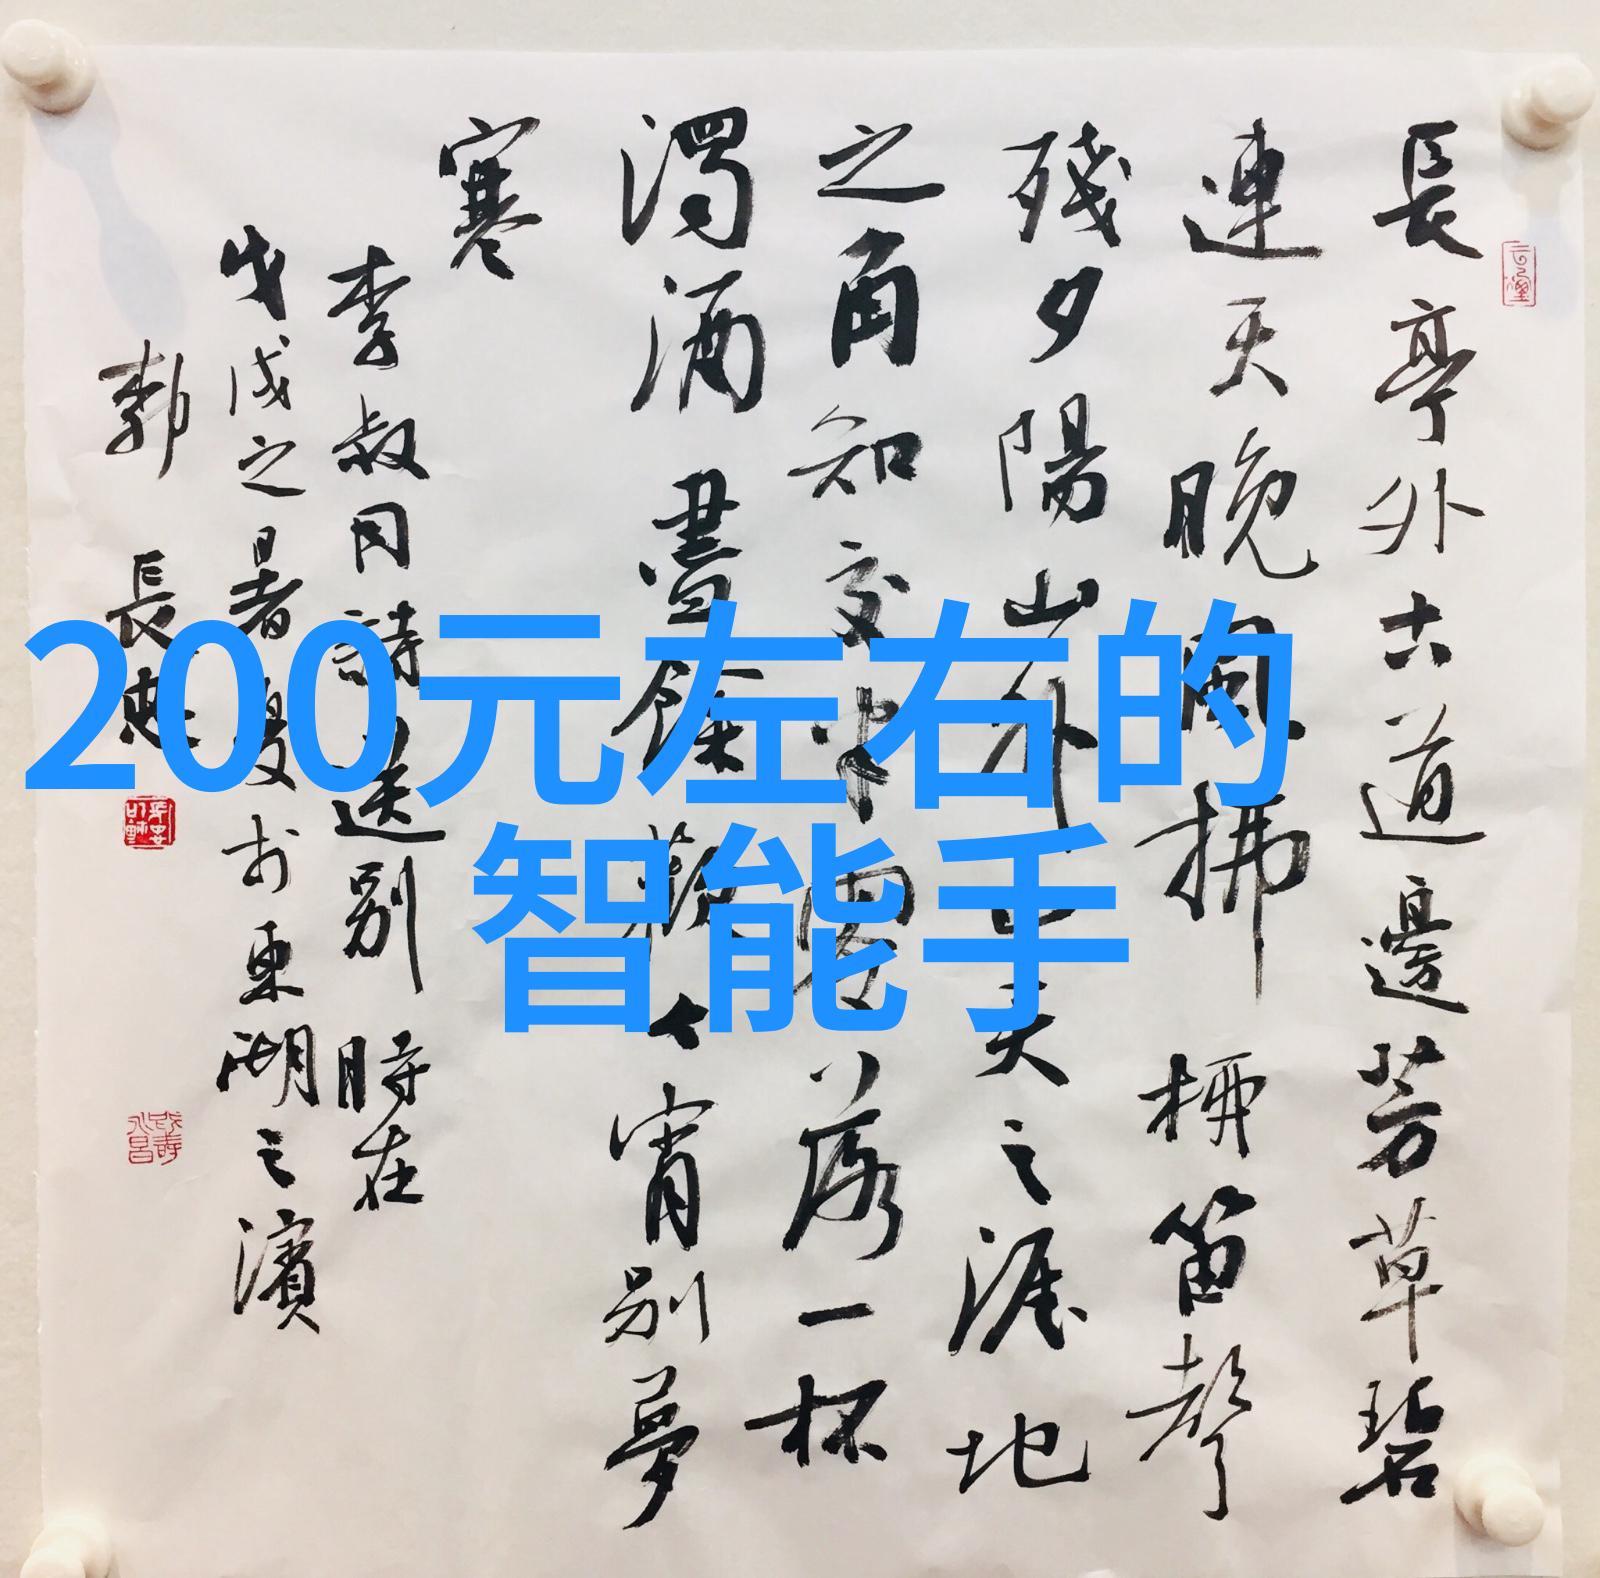 長亭外古道邊芳草碧
連天晚風拂柳笛聲
殘夕陽山外山天之涯地
之角知交半零落一杯
濁酒盡餘歡今宵別夢
寒
李叔同詩送別 時在
戊戌之暑夏於東湖之濱
郭 長
200元左右的
智能手